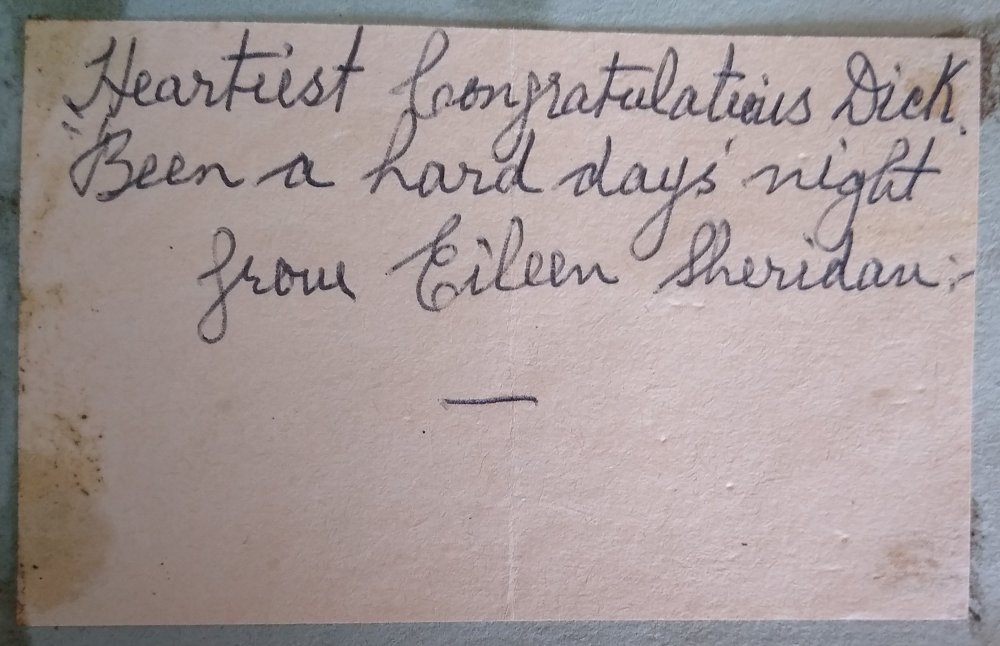 Heartiest Congratulations Dick.
"Been a hard days' night
from Eileen Sheridan:-